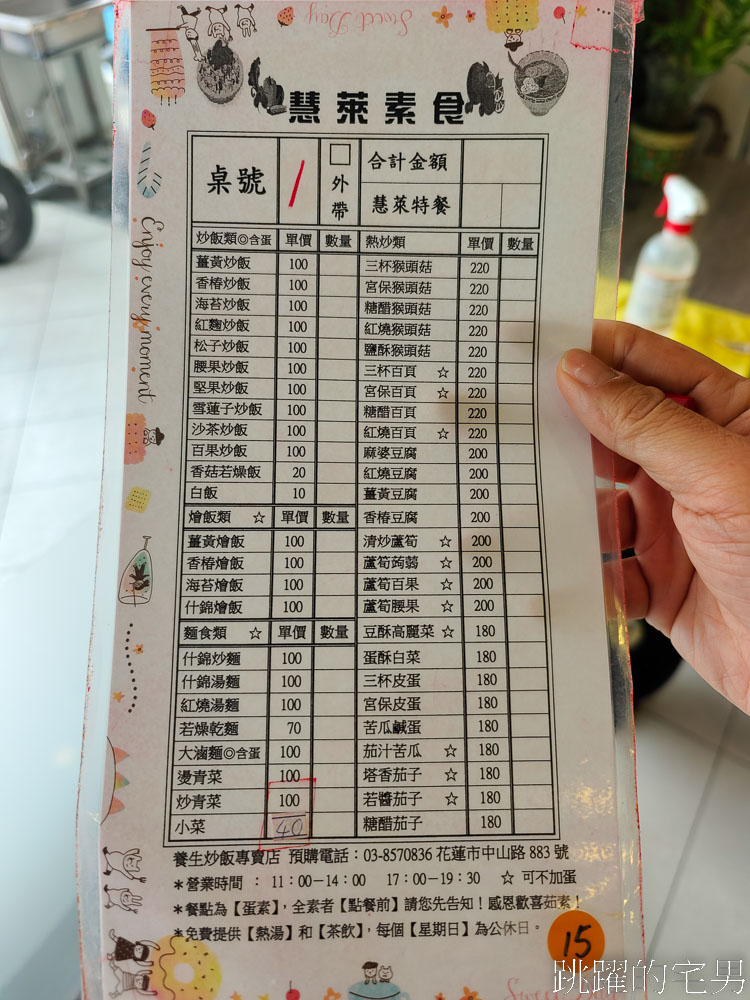 Sweet Day
慧萊素食
桌號 1 □外帶 合計金額
慧萊特餐
炒飯類◎含蛋 單價 數量 熱炒類 單價 數量
薑黃炒飯 100 三杯猴頭菇 220
香椿炒飯 100 宮保猴頭菇 220
海苔炒飯 100 糖醋猴頭菇 220
紅麴炒飯 100 紅燒猴頭菇 220
松子炒飯 100 鹽酥猴頭菇 220
腰果炒飯 100 三杯百頁 ☆ 220
堅果炒飯 100 宮保百頁 ☆ 220
雪蓮子炒飯 100 糖醋百頁 220
沙茶炒飯 100 紅燒百頁 ☆ 220
百果炒飯 100 麻婆豆腐 200
香菇若燥飯 20 紅燒豆腐 200
白飯 10 薑黃豆腐 200
燴飯類 ☆ 單價 數量 香椿豆腐 200
薑黃燴飯 100 清炒蘆筍 ☆ 200
香椿燴飯 100 蘆筍蒟蒻 ☆ 200
海苔燴飯 100 蘆筍百果 ☆ 200
什錦燴飯 100 蘆筍腰果 ☆ 200
麵食類 ☆ 單價 數量 豆酥高麗菜 ☆ 180
什錦炒麵 100 蛋酥白菜 180
什錦湯麵 100 三杯皮蛋 180
紅燒湯麵 100 宮保皮蛋 180
若燥乾麵 70 苦瓜鹹蛋 180
大滷麵◎含蛋 100 茄汁苦瓜 ☆ 180
燙青菜 100 塔香茄子 ☆ 180
炒青菜 100 若醬茄子 ☆ 180
小菜 40 糖醋茄子 180
養生炒飯專賣店 預購電話：03-8570836 花蓮市中山路 883 號
＊營業時間 ： 11：00－14：00 17：00－19：30 ☆ 可不加蛋
＊餐點為【蛋素】，全素者【點餐前】請您先告知！感恩歡喜茹素！
＊免費提供【熱湯】和【茶飲】，每個【星期日】為公休日。
15
Enjoy every moment
跳躍的宅男